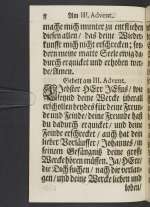 8 Am III. Advent.
mache mich munter zu entfliehen
diesen allen / das deine Wieder-
kunfft mich nicht erschrecke; son-
dern meine matte Seele ewig da-
durch erquicket und erhoben wer-
de / Amen.
Gebett am III. Advent.
Liebster HErr JEsus / von
deine Wercke überall
erschollen beydes für deine Freun-
de und Feinde / deine Freunde hast
du dadurch erquicket / und deine
Feinde erschrecket / auch hat dein
lieber Vorläuffer / Johannes / in
seinem Gefängnüs deine grosse
Wercke hören müssen. Ja / HErr!
die Dich suchen / nach dir verlan-
gen / und deine Wercke lieben und
loben /